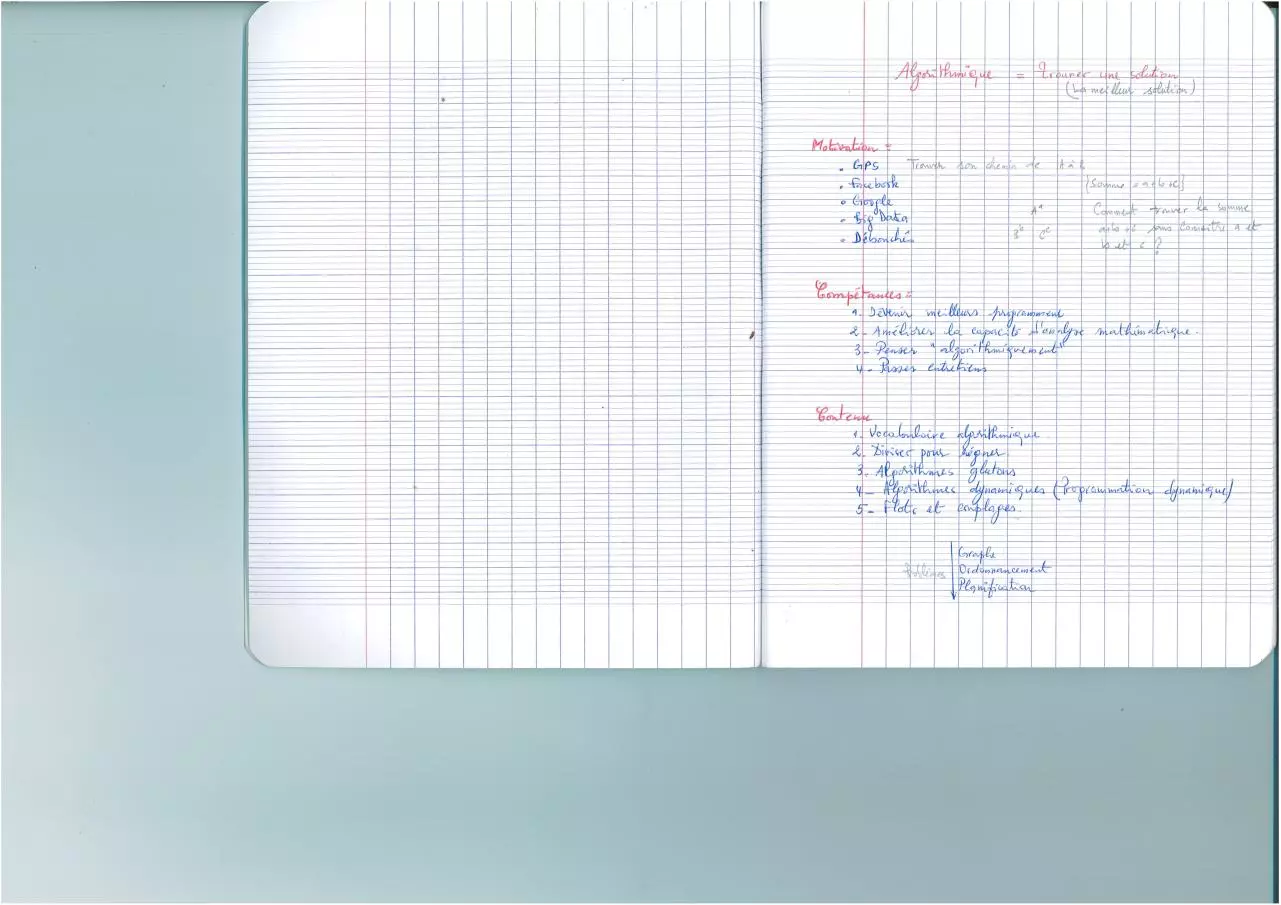 Algorithmique = trouver une solution
(La meilleur solution)
Motivation =
• GPS Trouver son chemin de A à b
• Facebook [Somme = a+b+c]
• Google
Aª Comment trouver la somme
• Big Data
Bᵇ Cᶜ a+b+c sans connaitre a et
• Débouchés
b et c ?
Compétances =
1- Devenir meilleurs programment
2- Améliorer la capacité d'analyse mathématique.
3- Penser "algorithmiquement"
4- Passer entretiens
Contenu
1- Vocabulaire algorithmique
2- Diviser pour régner
3. Algorithmes gloutons
4- Algorithmes dynamiques (Programmation dynamique)
5- Flots et couplages.
Graphe
Problèmes Ordonnancement
Planification